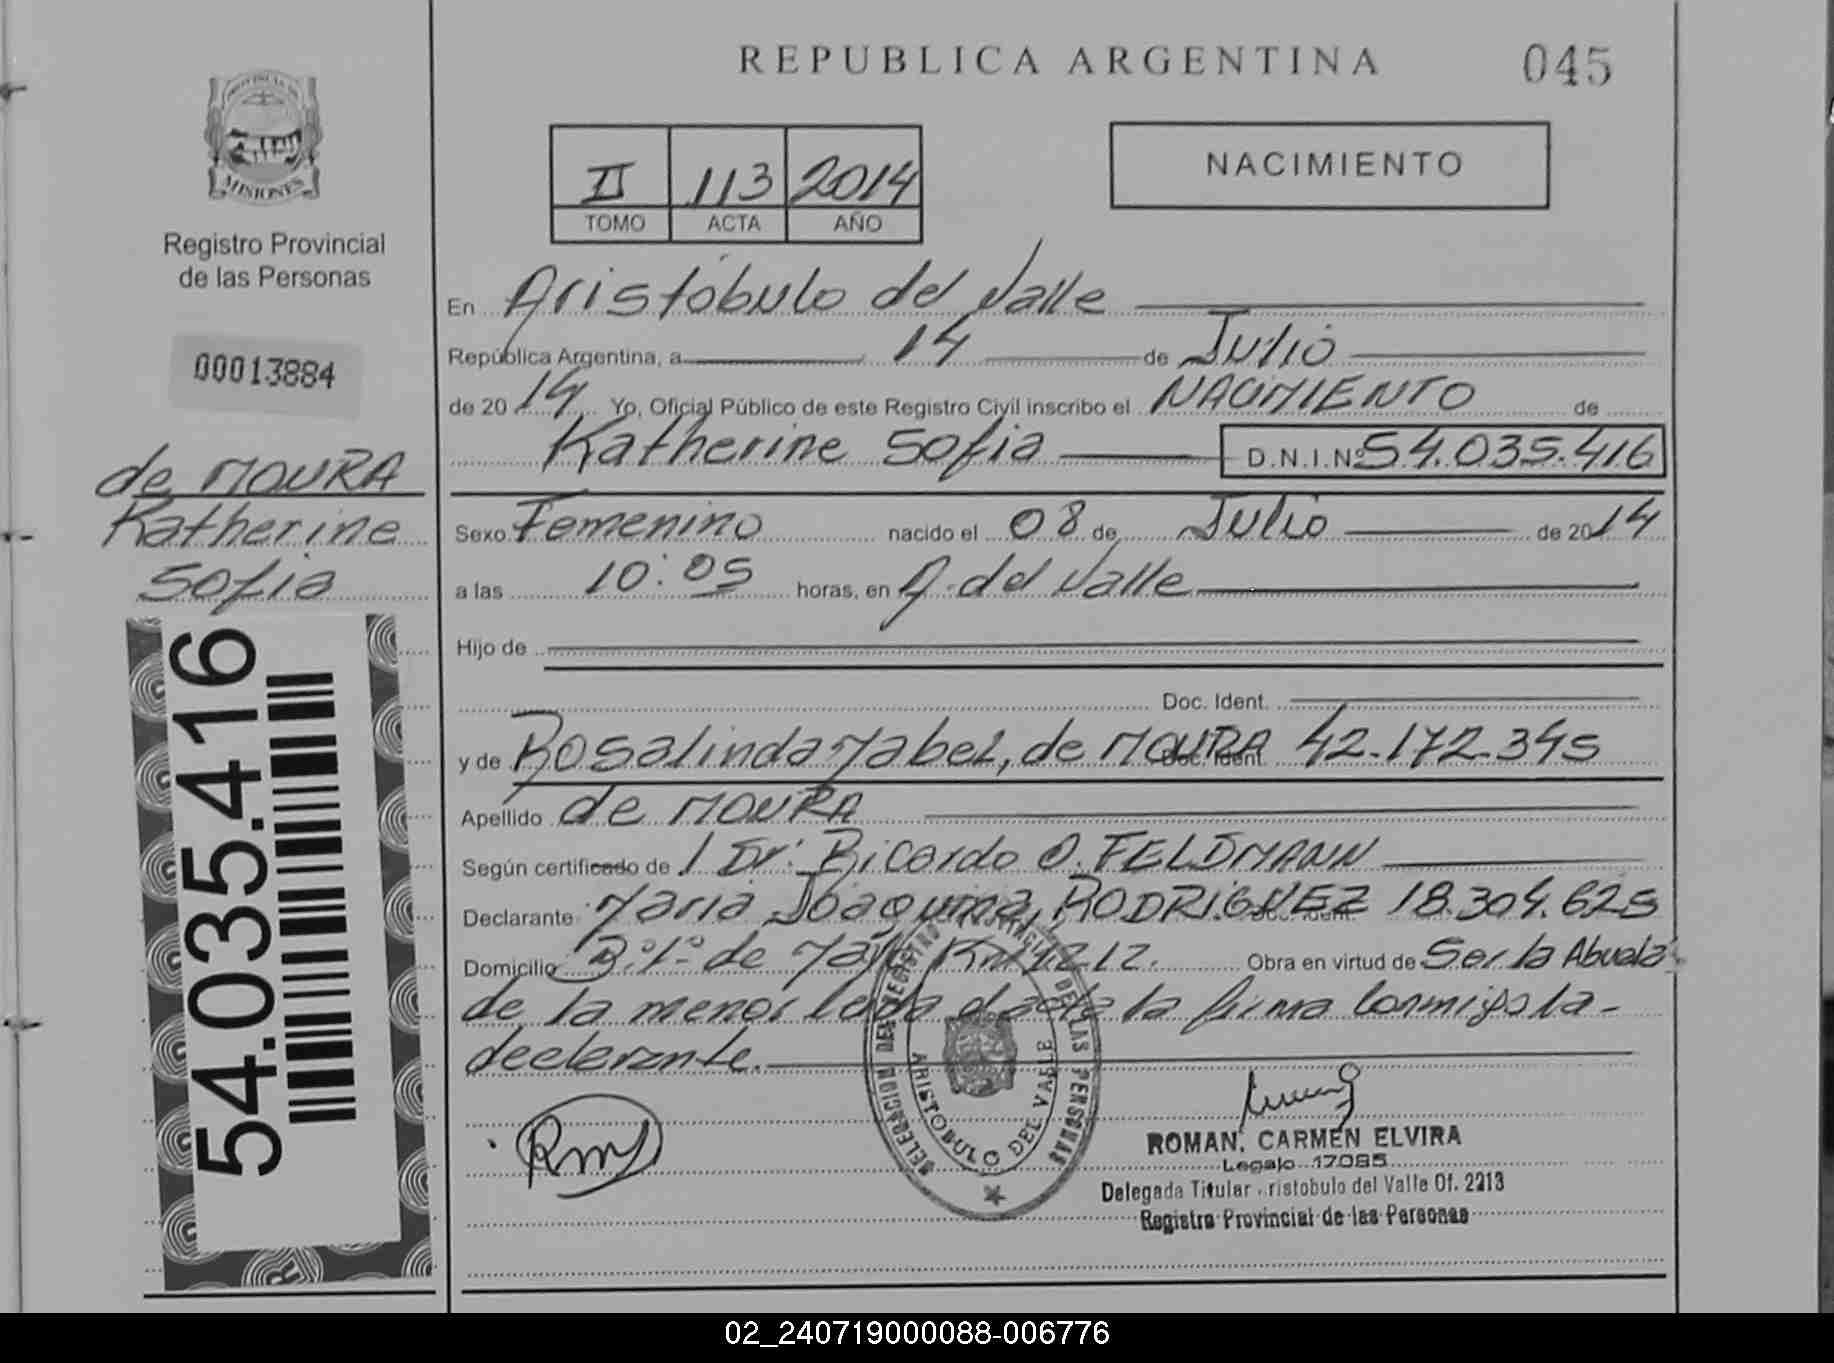 REPUBLICA ARGENTINA
045
PROVINCIA DE
MISIONES
Registro Provincial
de las Personas
00013884
de MOURA
Katherine
Sofia
54.035.416
II 113 2014
TOMO ACTA AÑO
NACIMIENTO
En Aristóbulo del Valle
República Argentina, a 14 de Julio
de 2014 Yo, Oficial Público de este Registro Civil inscribo el NACIMIENTO de
Katherine Sofia D.N.I.Nº 54.035.416
Sexo Femenino nacido el 08 de Julio de 2014
a las 10:05 horas, en A. del Valle
Hijo de
Doc. Ident.
y de Rosalinda Mabel, de MOURA Doc. Ident. 42.172.345
Apellido de MOURA
Según certificado de / Dr. Ricardo O. FELDMANN
Declarante Maria Joaquina, RODRIGUEZ Doc. Ident. 18.304.625
Domicilio B.º 1º de Mayo Km 1212. Obra en virtud de Ser la Abuela
de la menor la firma conmigo la
declarante.
DELEGACION DEL REGISTRO PROVINCIAL DE LAS PERSONAS
ARISTOBULO DEL VALLE
ROMAN, CARMEN ELVIRA
Legajo 17085
Delegada Titular ristobulo del Valle Of. 2213
Registro Provincial de las Personas
02_240719000088-006776